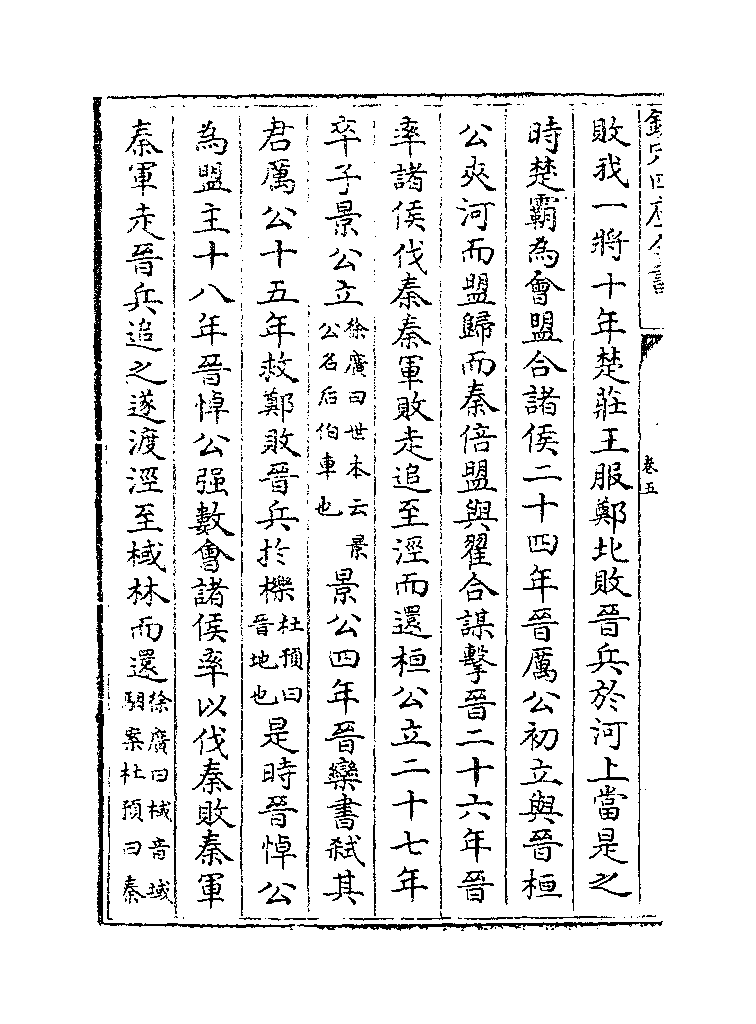 欽定四庫全書
卷五
敗我一將十年楚莊王服鄭北敗晉兵於河上當是之
時楚霸為會盟合諸侯二十四年晉厲公初立與晉桓
公夾河而盟歸而秦倍盟與翟合謀擊晉二十六年晉
率諸侯伐秦秦軍敗走追至涇而還桓公立二十七年
卒子景公立徐廣曰世本云景公名后伯車也景公四年晉欒書弒其
君厲公十五年救鄭敗晉兵扵櫟杜預曰晉地也是時晉悼公
為盟主十八年晉悼公强數會諸侯率以伐秦敗秦軍
秦軍走晉兵追之遂渡涇至棫林而還徐廣曰棫音域駰案杜預曰秦